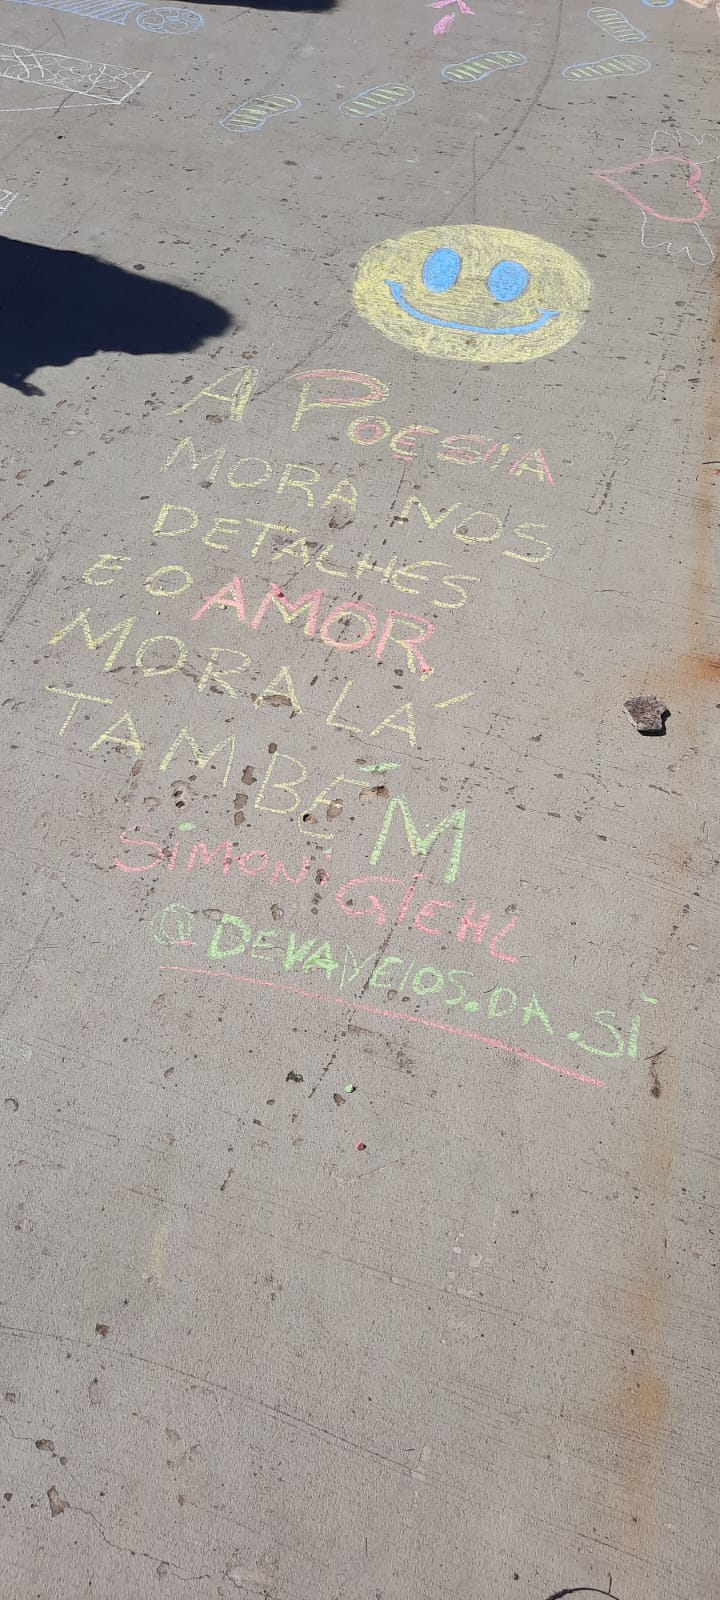 A POESIA
MORA NOS
DETALHES
E O AMOR
MORA LÁ
TAMBÉM
SIMONI GIEHL
@DEVANEIOS.DA.SI